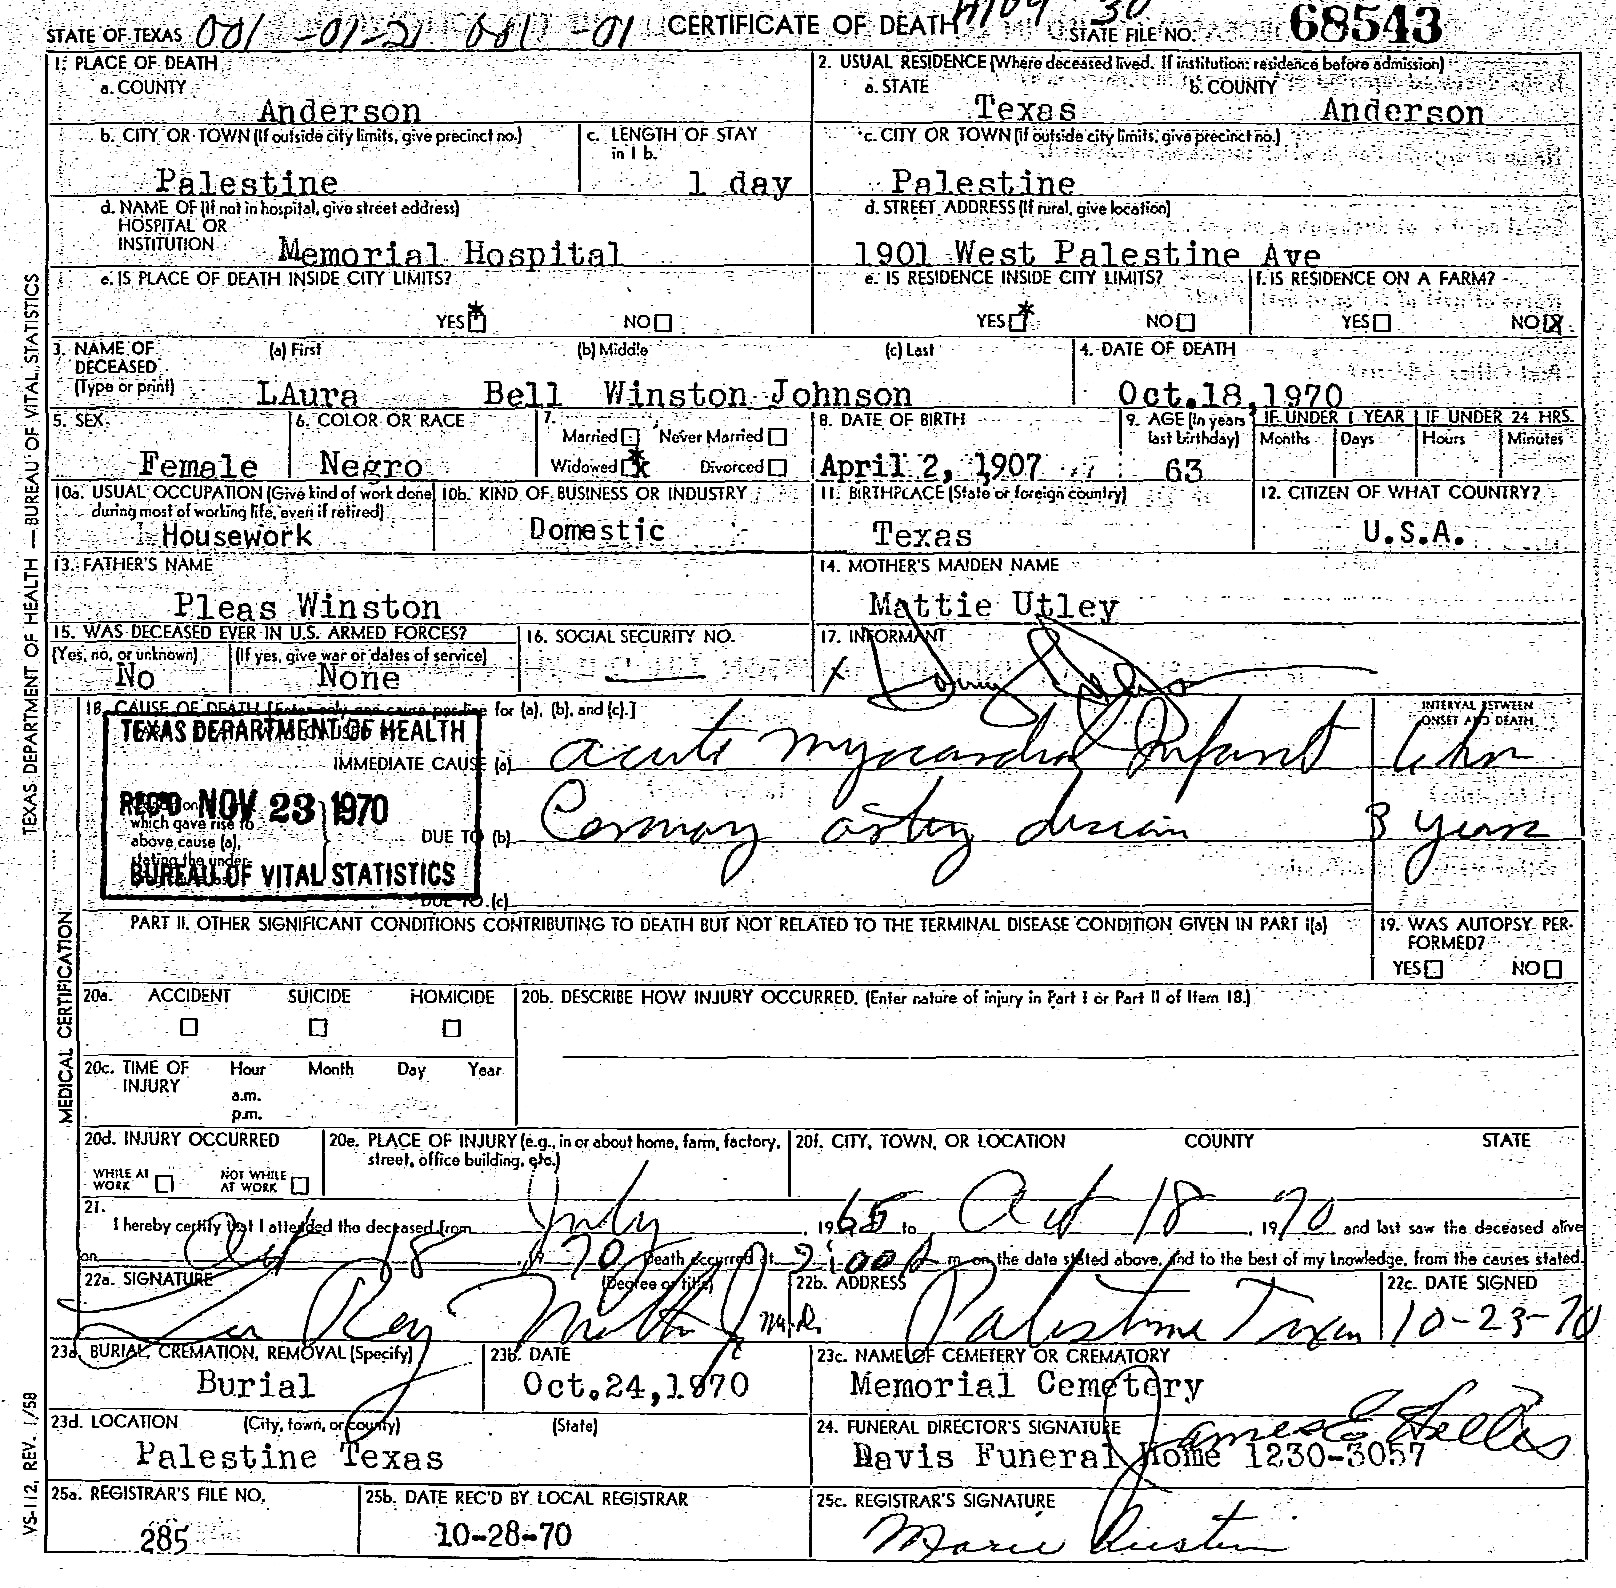 STATE OF TEXAS 001 -01-21 0811 -01 CERTIFICATE OF DEATH 30 STATE FILE NO. 68543
1. PLACE OF DEATH
a. COUNTY
Anderson
2. USUAL RESIDENCE (Where deceased lived. If institution: residence before admission)
a. STATE b. COUNTY
Texas Anderson
b. CITY OR TOWN (If outside city limits, give precinct no.)
Palestine
c. LENGTH OF STAY
in 1 b.
1 day
c. CITY OR TOWN (If outside city limits, give precinct no.)
Palestine
d. NAME OF (If not in hospital, give street address)
HOSPITAL OR
INSTITUTION
Memorial Hospital
d. STREET ADDRESS (If rural, give location)
1901 West Palestine Ave
e. IS PLACE OF DEATH INSIDE CITY LIMITS?
YES NO
e. IS RESIDENCE INSIDE CITY LIMITS?
YES NO
f. IS RESIDENCE ON A FARM?
YES NO X
3. NAME OF
DECEASED
(Type or print)
(a) First (b) Middle (c) Last
LAura Bell Winston Johnson
4. DATE OF DEATH
Oct.18,1970
5. SEX
Female
6. COLOR OR RACE
Negro
7.
Married Never Married
Widowed Divorced
8. DATE OF BIRTH
April 2, 1907
9. AGE (In years
last birthday)
63
IF UNDER 1 YEAR IF UNDER 24 HRS.
Months Days Hours Minutes
10a. USUAL OCCUPATION (Give kind of work done
during most of working life, even if retired)
Housework
10b. KIND OF BUSINESS OR INDUSTRY
Domestic
11. BIRTHPLACE (State or foreign country)
Texas
12. CITIZEN OF WHAT COUNTRY?
U.S.A.
13. FATHER'S NAME
Pleas Winston
14. MOTHER'S MAIDEN NAME
Mattie Utley
15. WAS DECEASED EVER IN U.S. ARMED FORCES?
(Yes, no, or unknown) (If yes, give war or dates of service)
No None
16. SOCIAL SECURITY NO.
17. INFORMANT
X
18. CAUSE OF DEATH [Enter only one cause per line for (a), (b), and (c).]
INTERVAL BETWEEN
ONSET AND DEATH
TEXAS DEPARTMENT OF HEALTH
REC'D NOV 23 1970
BUREAU OF VITAL STATISTICS
IMMEDIATE CAUSE (a) acute myocardial Infarct
which gave rise to
above cause (a),
stating the under-
DUE TO (b) Coronary artery disease 3 years
DUE TO (c)
PART II. OTHER SIGNIFICANT CONDITIONS CONTRIBUTING TO DEATH BUT NOT RELATED TO THE TERMINAL DISEASE CONDITION GIVEN IN PART I(a)
19. WAS AUTOPSY PER-
FORMED?
YES NO
20a. ACCIDENT SUICIDE HOMICIDE
20b. DESCRIBE HOW INJURY OCCURRED. (Enter nature of injury in Part I or Part II of Item 18.)
20c. TIME OF
INJURY
Hour Month Day Year
a.m.
p.m.
20d. INJURY OCCURRED
WHILE AT
WORK
NOT WHILE
AT WORK
20e. PLACE OF INJURY (e.g., in or about home, farm, factory,
street, office building, etc.)
20f. CITY, TOWN, OR LOCATION COUNTY STATE
21.
I hereby certify that I attended the deceased from July, 1965 to Oct 18, 1970 and last saw the deceased alive
on Oct 18, 1970 Death occurred at 2:00 p m on the date stated above, and to the best of my knowledge, from the causes stated.
22a. SIGNATURE (Degree or title)
M.D.
22b. ADDRESS
Palestine Texas
22c. DATE SIGNED
10-23-70
23a. BURIAL, CREMATION, REMOVAL (Specify)
Burial
23b. DATE
Oct.24,1970
23c. NAME OF CEMETERY OR CREMATORY
Memorial Cemetery
23d. LOCATION (City, town, or county) (State)
Palestine Texas
24. FUNERAL DIRECTOR'S SIGNATURE
James E
Davis Funeral Home 1230-3057
25a. REGISTRAR'S FILE NO.
285
25b. DATE REC'D BY LOCAL REGISTRAR
10-28-70
25c. REGISTRAR'S SIGNATURE
Marie Austin
TEXAS DEPARTMENT OF HEALTH — BUREAU OF VITAL STATISTICS
MEDICAL CERTIFICATION
VS-112, REV. 1/58